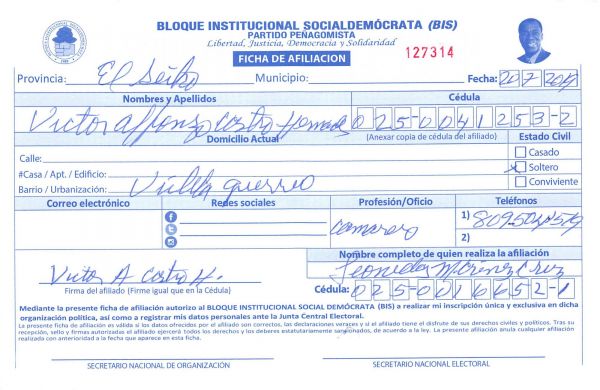 BLOQUE INSTITUCIONAL SOCIALDEMÓCRATA (BIS)
PARTIDO PEÑAGOMISTA
Libertad, Justicia, Democracia y Solidaridad
FICHA DE AFILIACION
127314
Provincia: El Seibo Municipio: Fecha:
Nombres y Apellidos Cédula
Victor Alfonzo Castro 025-0041253-2
Domicilio Actual (Anexar copia de cédula del afiliado) Estado Civil
Calle: Casado
#Casa / Apt. / Edificio: x Soltero
Barrio / Urbanización: Villa guerrero Conviviente
Correo electrónico Redes sociales Profesión/Oficio Teléfonos
camarero 1)
2)
Nombre completo de quien realiza la afiliación
Victor A Castro H. Cruz
Firma del afiliado (Firme igual que en la Cédula) Cédula: 025-0016652-1
Mediante la presente ficha de afiliación autorizo al BLOQUE INSTITUCIONAL SOCIAL DEMÓCRATA (BIS) a realizar mi inscripción única y exclusiva en dicha
organización política, así como a registrar mis datos personales ante la Junta Central Electoral.
La presente ficha de afiliación es válida si los datos ofrecidos por el afiliado son correctos, las declaraciones veraces y si el afiliado tiene el disfrute de sus derechos civiles y políticos. Tras su
recepción, sello y firmas autorizadas el afiliado ejercerá todos los derechos y los deberes estatutariamente sancionados, de acuerdo a la ley. La presente afiliación anula cualquier afiliación
realizada con anterioridad a la fecha que aparece en esta ficha.
SECRETARIO NACIONAL DE ORGANIZACIÓN SECRETARIO NACIONAL ELECTORAL